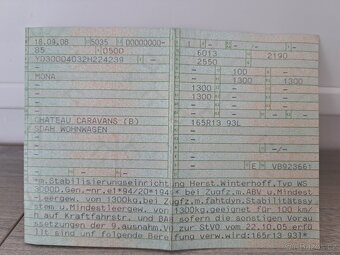 18.09.08 5035 00000000-
85 0500
YD30004D32H224239 -
-
MONA
-
-
CHATEAU CARAVANS (B)
SDAH WOHNWAGEN
-
6013 2190
2550 -
- 100 -
- 1300 -
1300 1300
- -
165R13 93L
-
E VB923661
*m.Stabilisierungseinrichtung Herst.Winterhoff,Typ WS
bei Zugfz.m.ABV u.Mindest-
leergew. von 1300kg,bei Zugfz.m.fahrdyn.Stabilitätssy
stem u.Mindestleergew. von 1300kg,geeignet für 100 km/
h auf Kraftfahrstr. und BAB sofern die sonstigen Voraus
setzungen der 9.ausnahm.VO zur StVO vom 22.10.05 erfü
llt sind und folgende Bereifung verw.wird:165r13 93l*